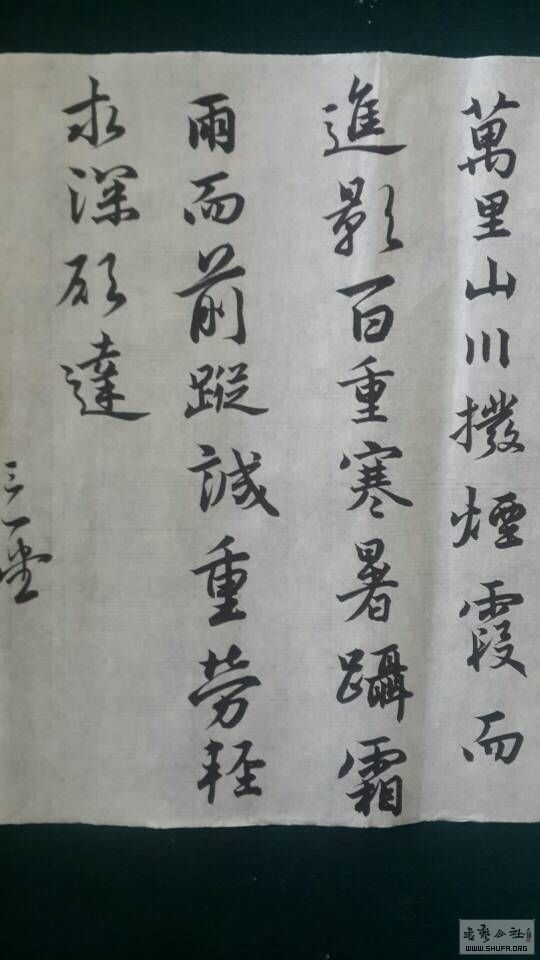 萬里山川撥煙霞而
進影百重寒暑躡霜
雨而前蹤誠重勞輕
求深願達
三一堂
WWW.SHUFA.ORG